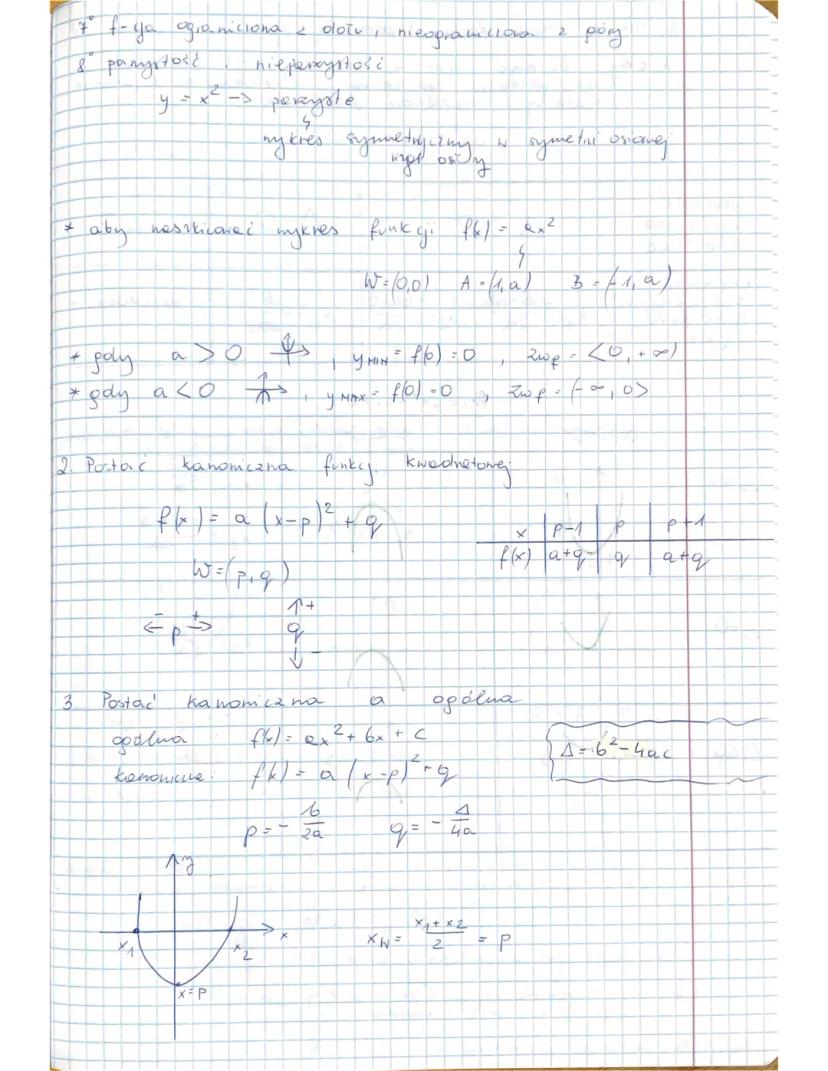 7° f-cja ograniczona z dołu, nieograniczona z góry
8° parzystość, nieparzystość
y = x² -> parzyste
wykres symetryczny w symetrii osiowej
wzgl osi y
* aby naszkicować wykres funkcji f(x) = ax²
W=(0,0) A=(1,a) B=(-1,a)
* gdy a > 0 , y MIN = f(0) = 0 , Zwf = <0, +∞)
* gdy a < 0 , y MAX = f(0) = 0 , Zwf = (-∞, 0>
2. Postać kanoniczna funkcji kwadratowej
f(x) = a (x-p)² + q
x p-1 p p+1
f(x) a+q q a+q
W=(p,q)
- +
← p →
↑+
q
↓-
3 Postać kanoniczna a ogólna
ogólna f(x) = ax² + bx + c
Δ = b² - 4ac
kanoniczna: f(x) = a (x-p)² + q
p = - b/2a q = - Δ/4a
y
x
x₁ x₂
x=p
xW = x₁+x2/2 = p